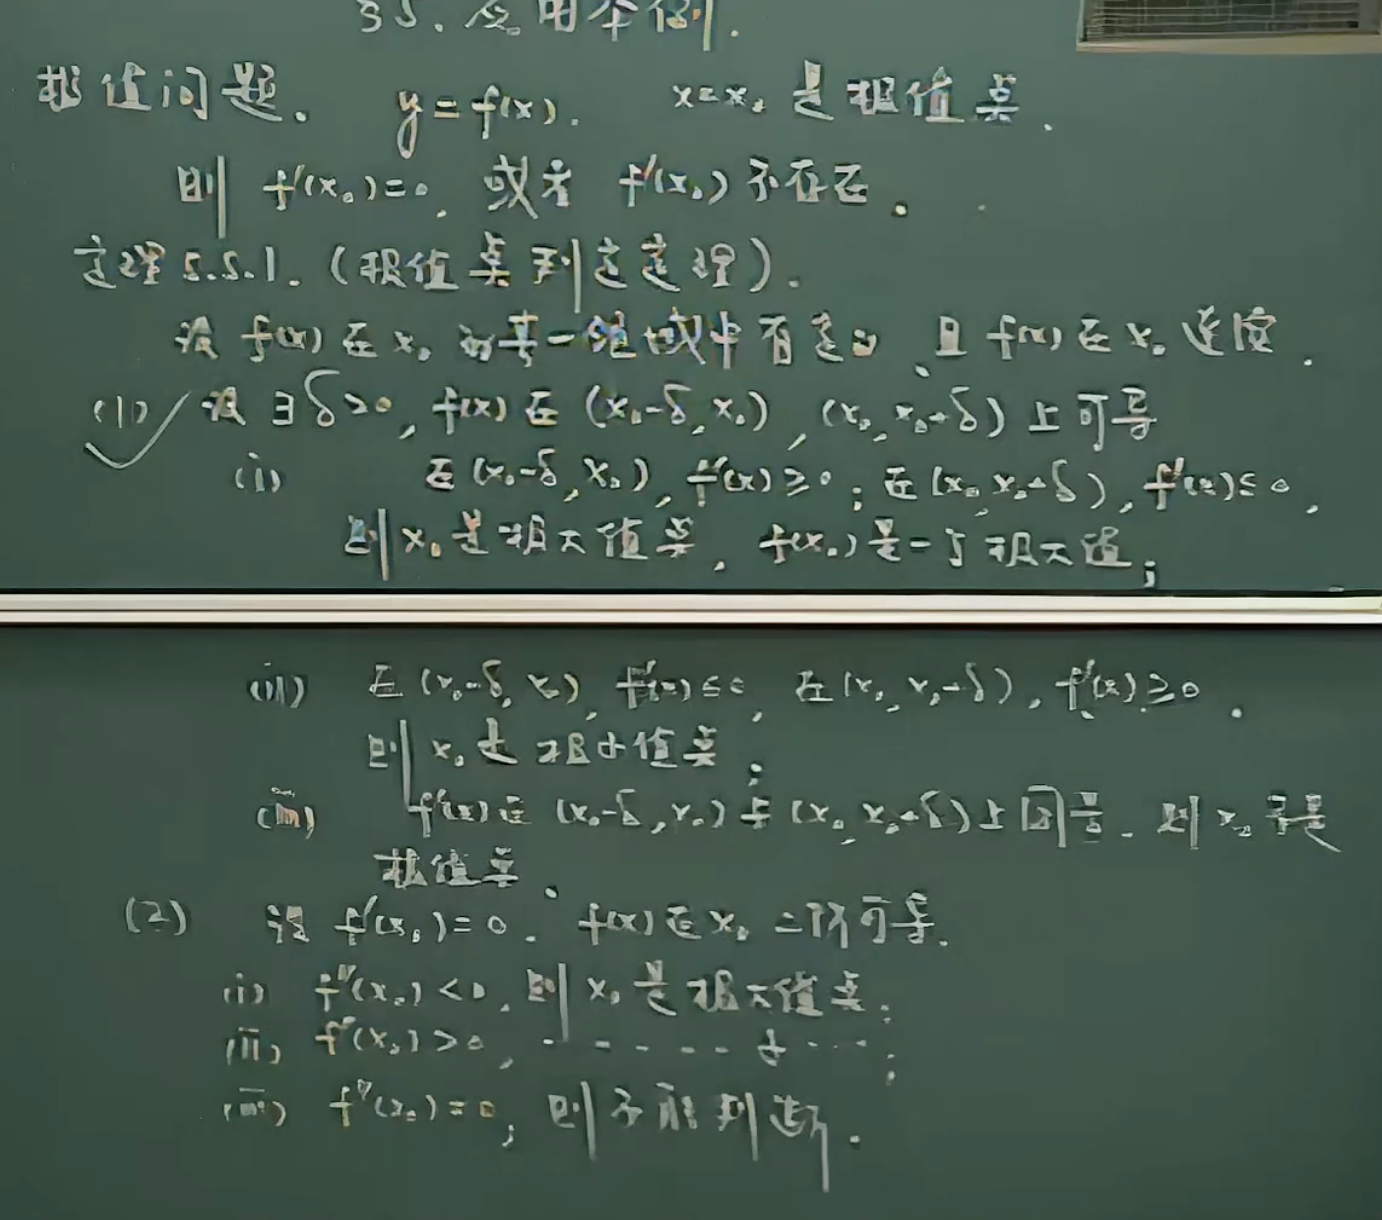 §5. 应用举例.
极值问题. y=f(x). x=x₀ 是极值点.
则 f'(x₀)=0, 或者 f'(x₀) 不存在.
定理5.5.1. (极值点判定定理).
设 f(x) 在 x₀ 的某一邻域中有定义, 且 f(x) 在 x₀ 连续.
(1) 设 ∃δ>0, f(x) 在 (x₀-δ, x₀), (x₀, x₀+δ) 上可导
(i) 在 (x₀-δ, x₀), f'(x)≥0; 在 (x₀, x₀+δ), f'(x)≤0,
则 x₀ 是极大值点, f(x₀) 是一个极大值;
(ii) 在 (x₀-δ, x₀), f'(x)≤0, 在 (x₀, x₀+δ), f'(x)≥0.
则 x₀ 是极小值点;
(iii) f'(x) 在 (x₀-δ, x₀) 与 (x₀, x₀+δ) 上同号. 则 x₀ 不是
极值点.
(2) 设 f'(x₀)=0. f(x) 在 x₀ 二阶可导.
(i) f''(x₀)<0, 则 x₀ 是极大值点;
(ii) f''(x₀)>0, - - - - - 小 - - -;
(iii) f''(x₀)=0, 则不能判断.